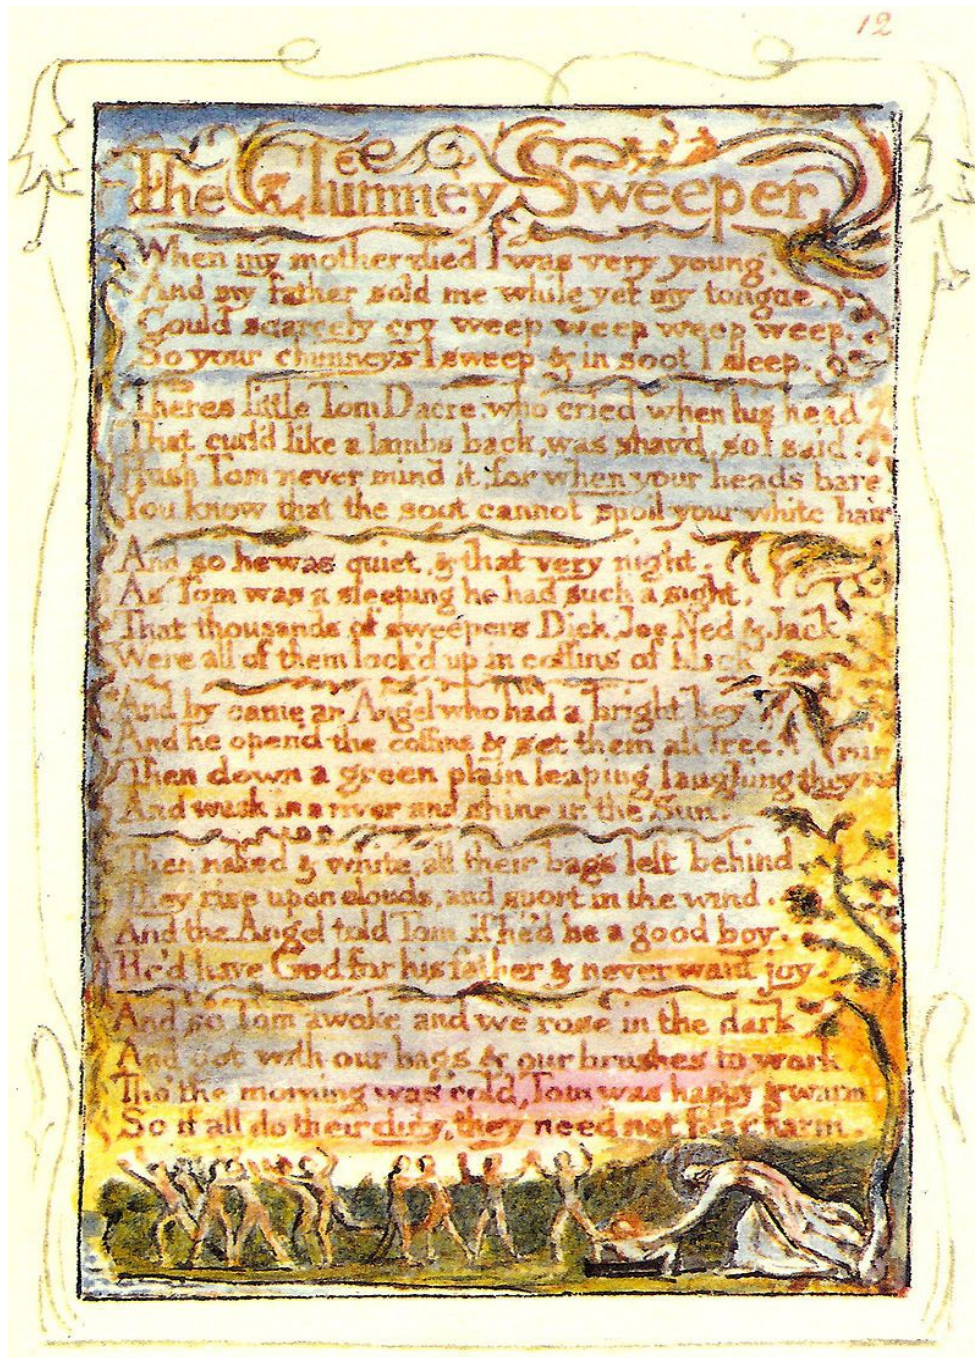 12
The Chimney Sweeper
When my mother died I was very young,
And my father sold me while yet my tongue,
Could scarcely cry weep weep weep weep.
So your chimneys I sweep & in soot I sleep.
Theres little Tom Dacre, who cried when his head
That curl'd like a lambs back, was shav'd, so I said.
Hush Tom never mind it, for when your head's bare,
You know that the soot cannot spoil your white hair
And so he was quiet, & that very night,
As Tom was a sleeping he had such a sight,
That thousands of sweepers Dick, Joe, Ned & Jack
Were all of them lock'd up in coffins of black
And by came an Angel who had a bright key
And he open'd the coffins & set them all free.
Then down a green plain leaping laughing they run
And wash in a river and shine in the Sun.
Then naked & white, all their bags left behind,
They rise upon clouds, and sport in the wind.
And the Angel told Tom if he'd be a good boy,
He'd have God for his father & never want joy.
And so Tom awoke and we rose in the dark
And got with our bags & our brushes to work
Tho' the morning was cold, Tom was happy & warm.
So if all do their duty, they need not fear harm.